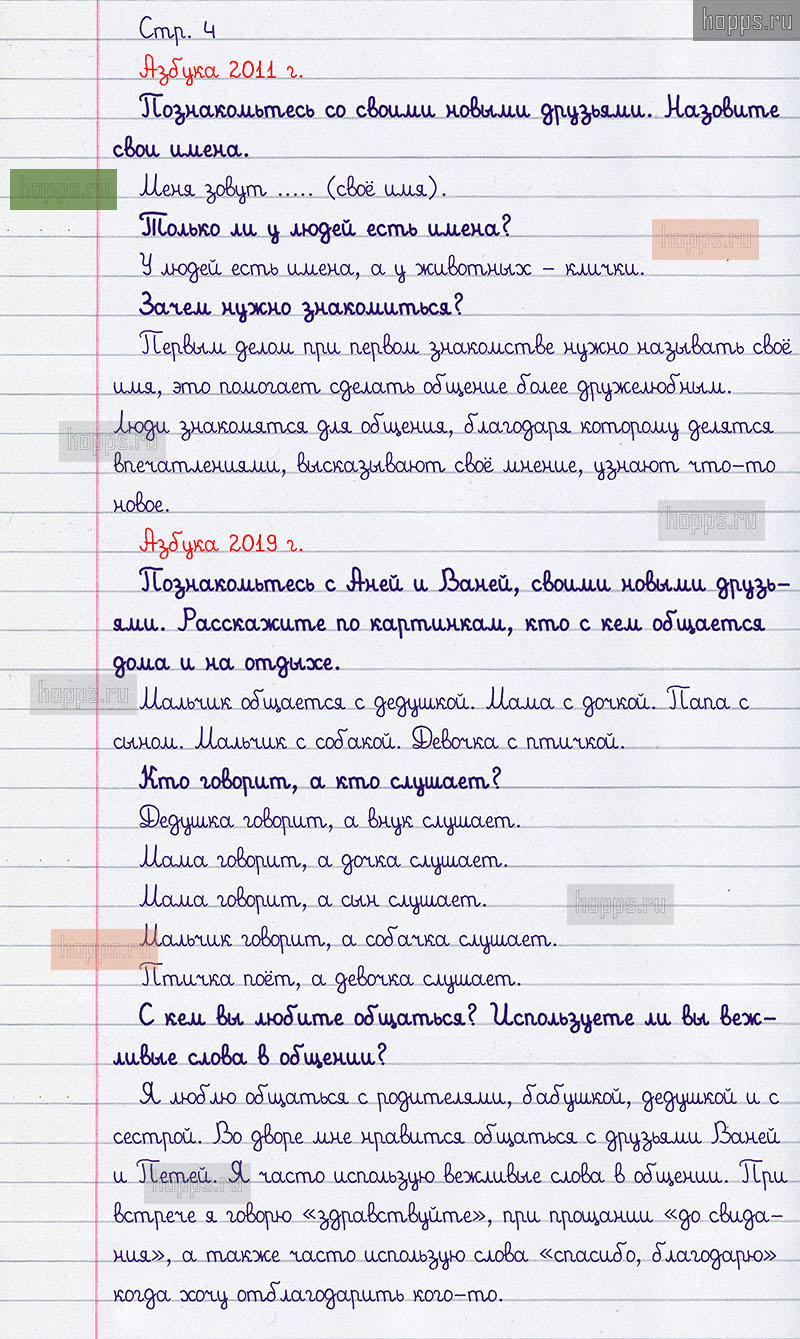 hopps.ru
Стр. 4
Азбука 2011 г.
Познакомьтесь со своими новыми друзьями. Назовите
свои имена.
hopps.ru
Меня зовут ..... (своё имя).
Только ли у людей есть имена?
hopps.ru
У людей есть имена, а у животных – клички.
Зачем нужно знакомиться?
Первым делом при первом знакомстве нужно называть своё
имя, это помогает сделать общение более дружелюбным.
Люди знакомятся для общения, благодаря которому делятся
hopps.ru
впечатлениями, высказывают своё мнение, узнают что-то
новое.
hopps.ru
Азбука 2019 г.
Познакомьтесь с Аней и Ваней, своими новыми друзь-
ями. Расскажите по картинкам, кто с кем общается
дома и на отдыхе.
hopps.ru
Мальчик общается с дедушкой. Мама с дочкой. Папа с
сыном. Мальчик с собакой. Девочка с птичкой.
Кто говорит, а кто слушает?
Дедушка говорит, а внук слушает.
Мама говорит, а дочка слушает.
Мама говорит, а сын слушает.
hopps.ru
Мальчик говорит, а собачка слушает.
hopps.ru
Птичка поёт, а девочка слушает.
С кем вы любите общаться? Используете ли вы веж-
ливые слова в общении?
Я люблю общаться с родителями, бабушкой, дедушкой и с
сестрой. Во дворе мне нравится общаться с друзьями Ваней
и Петей. Я часто использую вежливые слова в общении. При
hopps.ru
встрече я говорю «здравствуйте», при прощании «до свида-
ния», а также часто использую слова «спасибо, благодарю»
когда хочу отблагодарить кого-то.